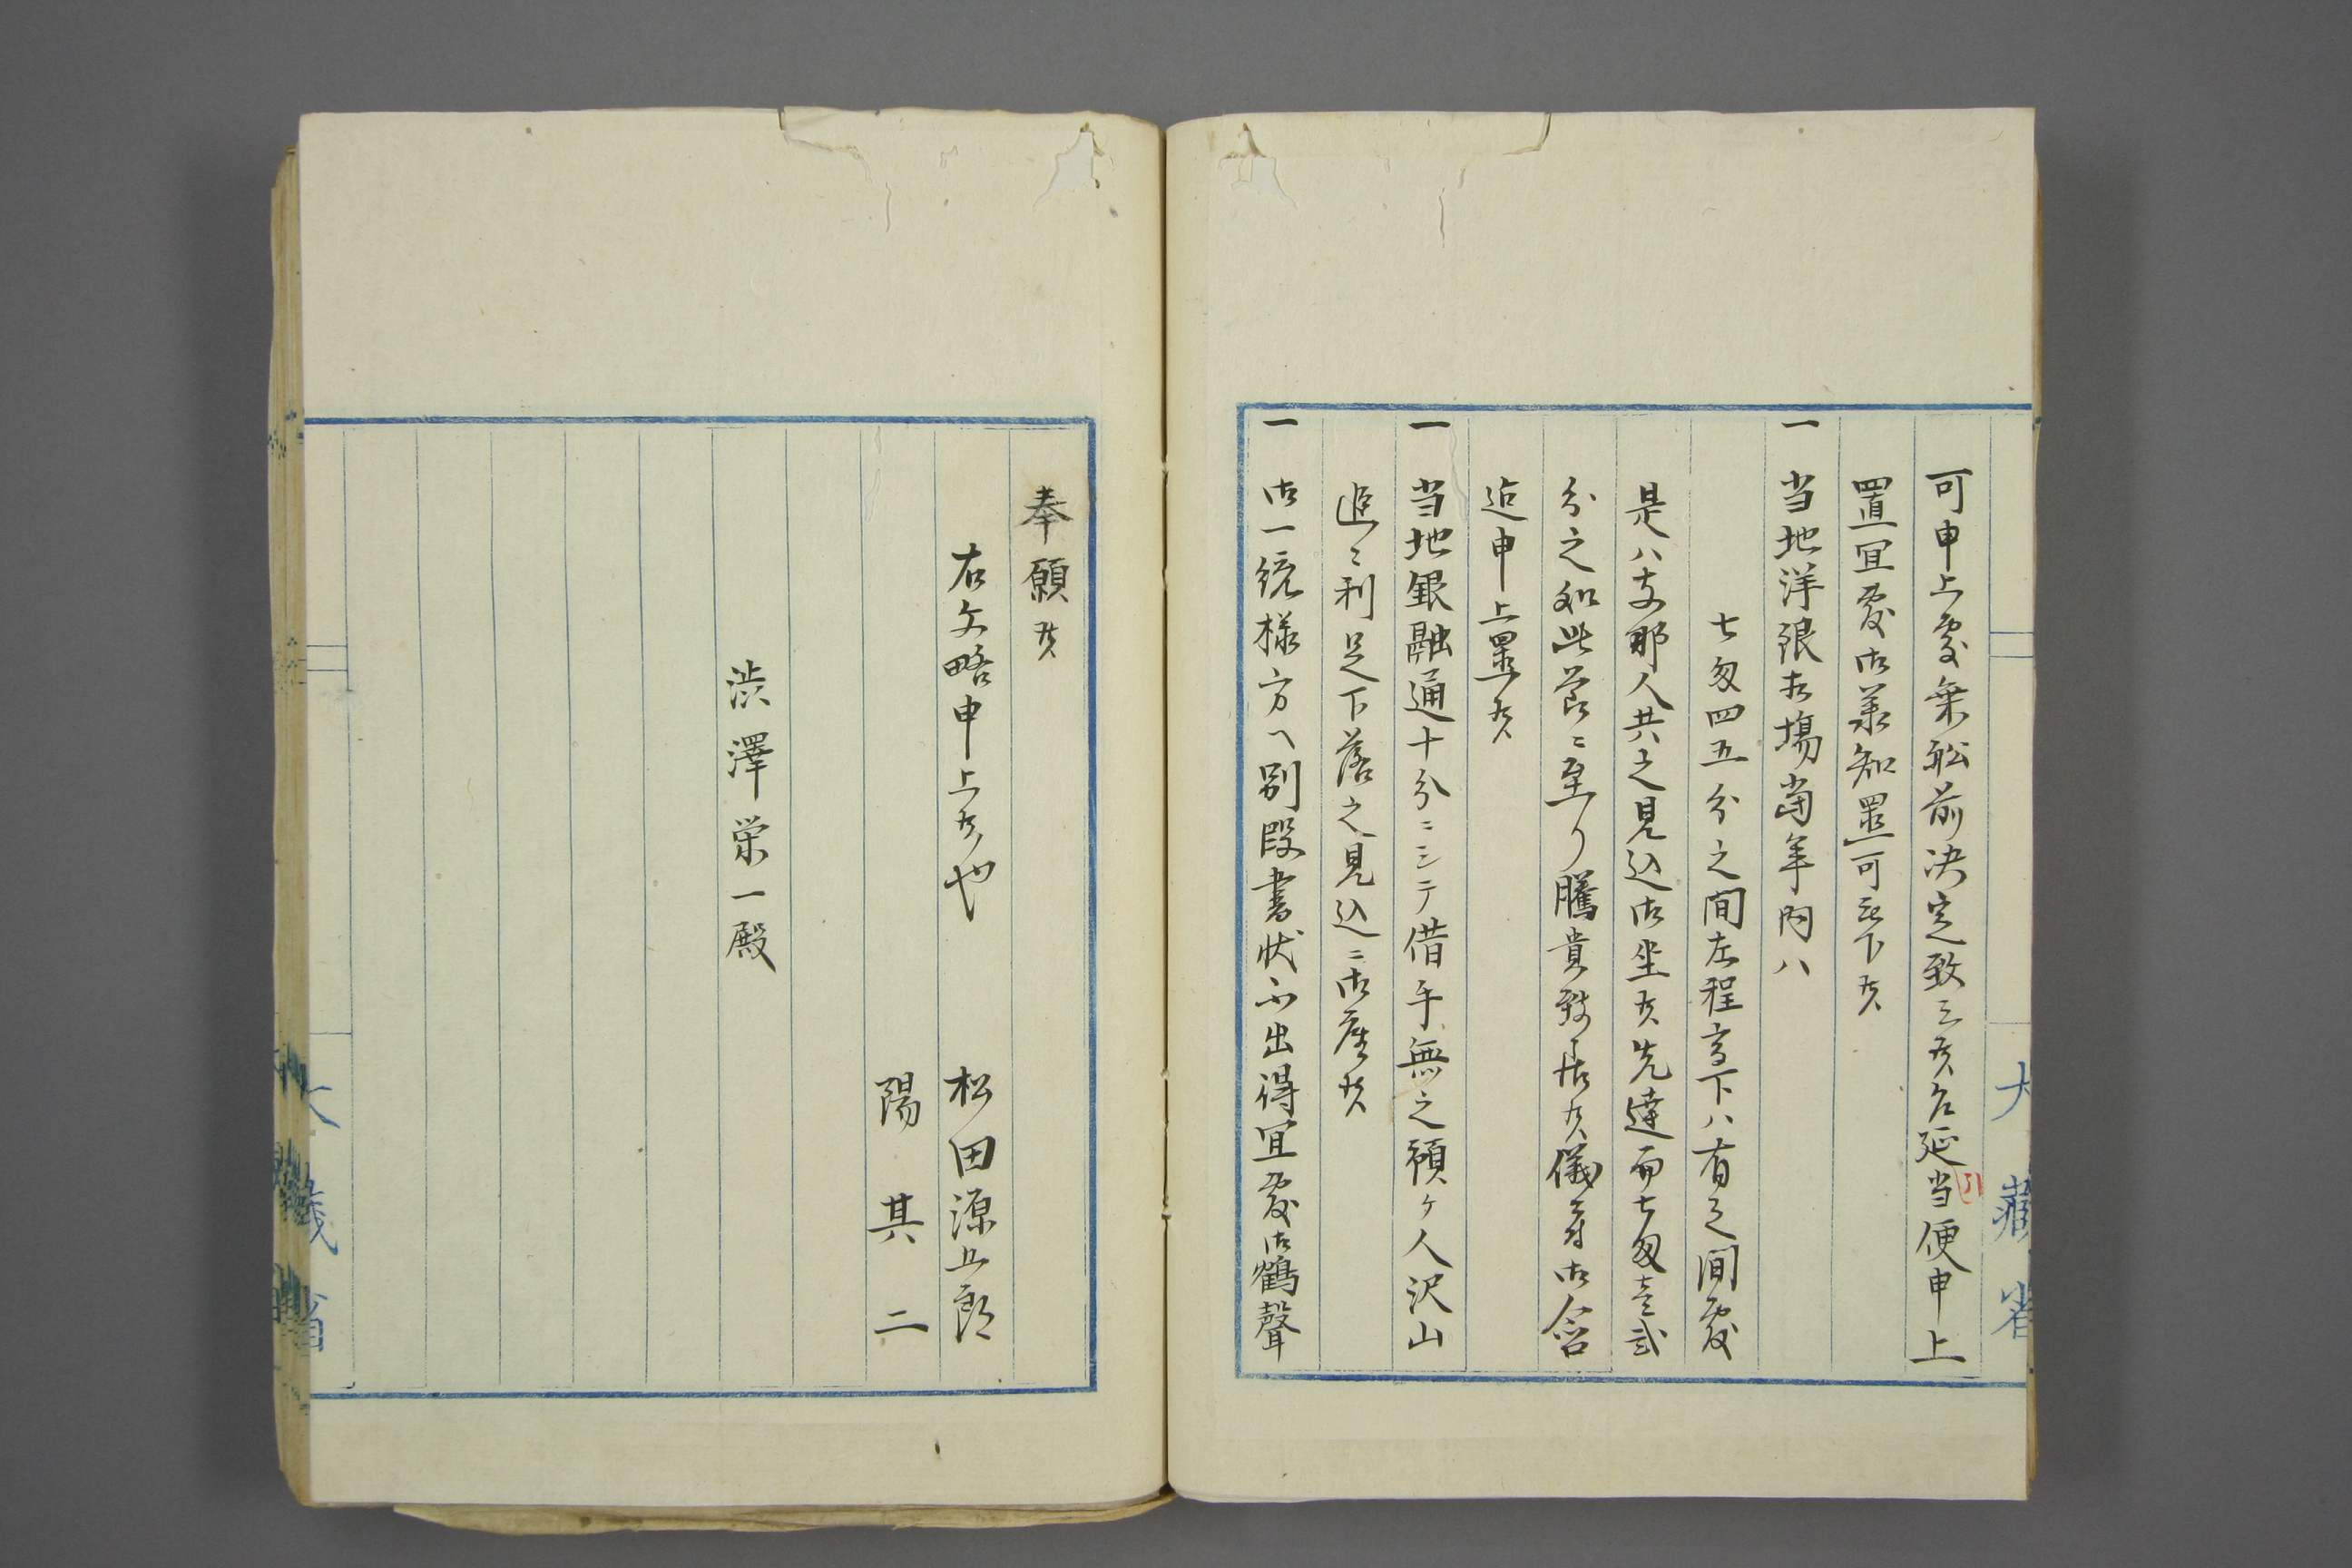 可申上処乗船前決定致シ候ハ名延当便申上
置宜敷御承知置可被下候
一 当地洋銀相場当年内ハ
七匁四五分之間左程高下ハ有之間敷
是ハ支那人共之見込御坐候先達而七匁壱弐
分之処此節ニ至リ騰貴致居候儀ニ付御含
迄申上置候
一 当地銀融通十分ニシテ借手無之預ケ人沢山
追々利足下落之見込ニ御座候
一 御一統様方ヘ別段書状不出得宜敷御鶴聲
大藏省
奉願候
右文略申上候也
松田源五郎
陽其二
渋澤栄一殿
大藏省